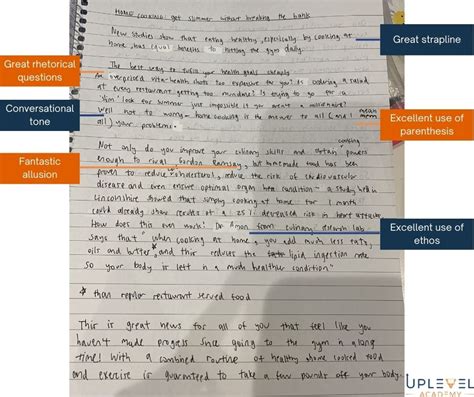 Home cooking: get slimmer without breaking the bank
New studies show that eating healthily, especially by cooking at
home, has equal benefits to hitting the gym daily.
The best way to your health goals cheaply
Great strapline
Great rhetorical
questions
Conversational
tone
Fantastic
allusion
Excellent use of
parenthesis
Excellent use of
ethos
An overpriced vita-health shots too expensive for you? Is ordering a salad
at every restaurant getting too mundane? Is trying to go for a
'slim' look for summer just impossible if you aren't a millionaire?
Well not to worry - home cooking is the answer to all (and I mean
all) your problems.
Not only do you improve your culinary skills and cooking powers
enough to rival Gordon Ramsay, but homemade food has been
proven to reduce cholesterol, reduce the risk of cardiovascular
disease and even ensure optimal organ condition - a study in
Lincolnshire showed that simply cooking at home for 1 month
could already show results of a 25% decreased risk in heart attacks.
How does this even work? Dr. from culinary research lab
says that "when cooking at home, you add much less salts,
oils and butter, and this reduces the lipid ingestion rate
so your body is left in a much healthier condition"
* than regular restaurant served food
This is great news for all of you that feel like you
haven't made progress since going to the gym in a long
time. With a combined routine of healthy home cooked food
and exercise is guaranteed to take a few pounds off your body.
UPLEVEL
ACADEMY